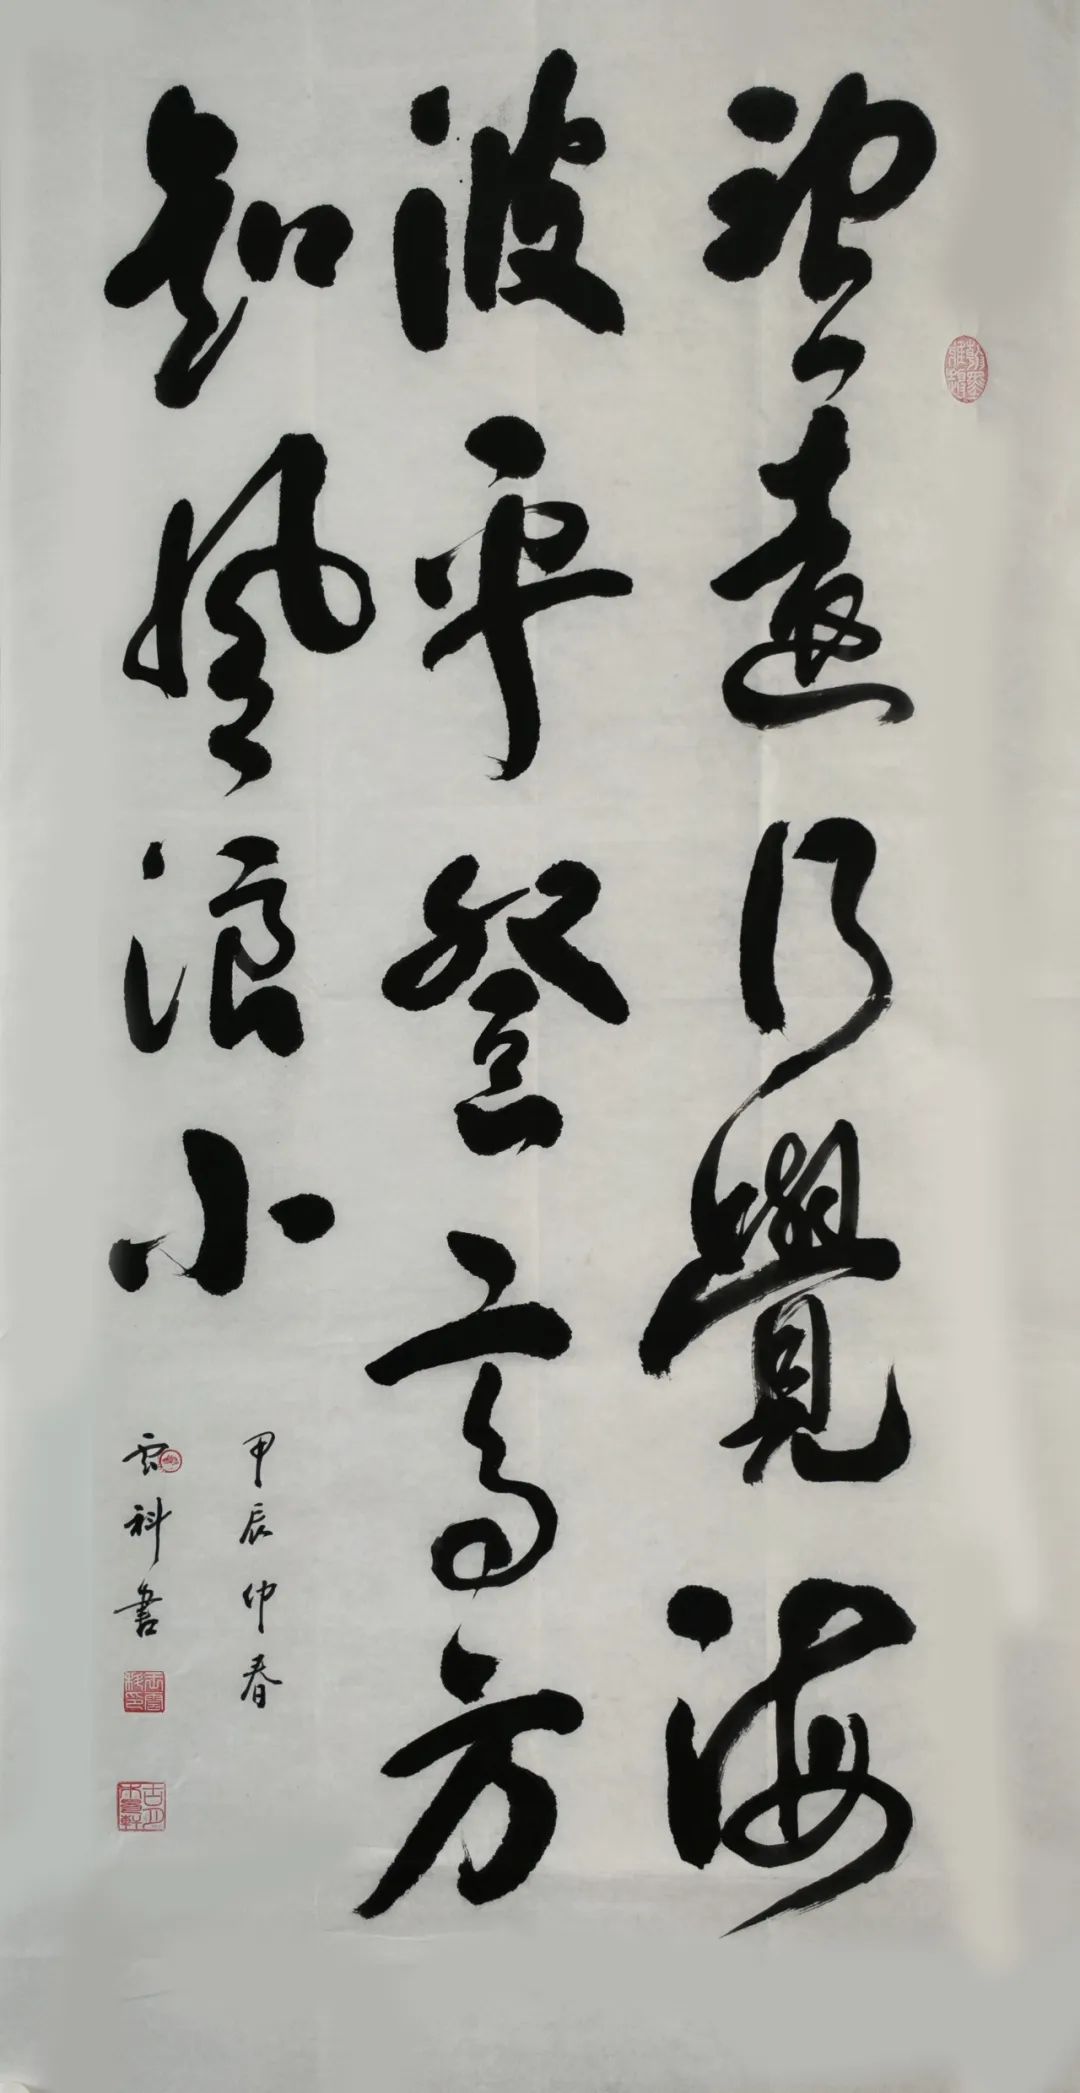 望遠乃覺海
波平登高方
知風浪小
甲辰仲春
雲科書